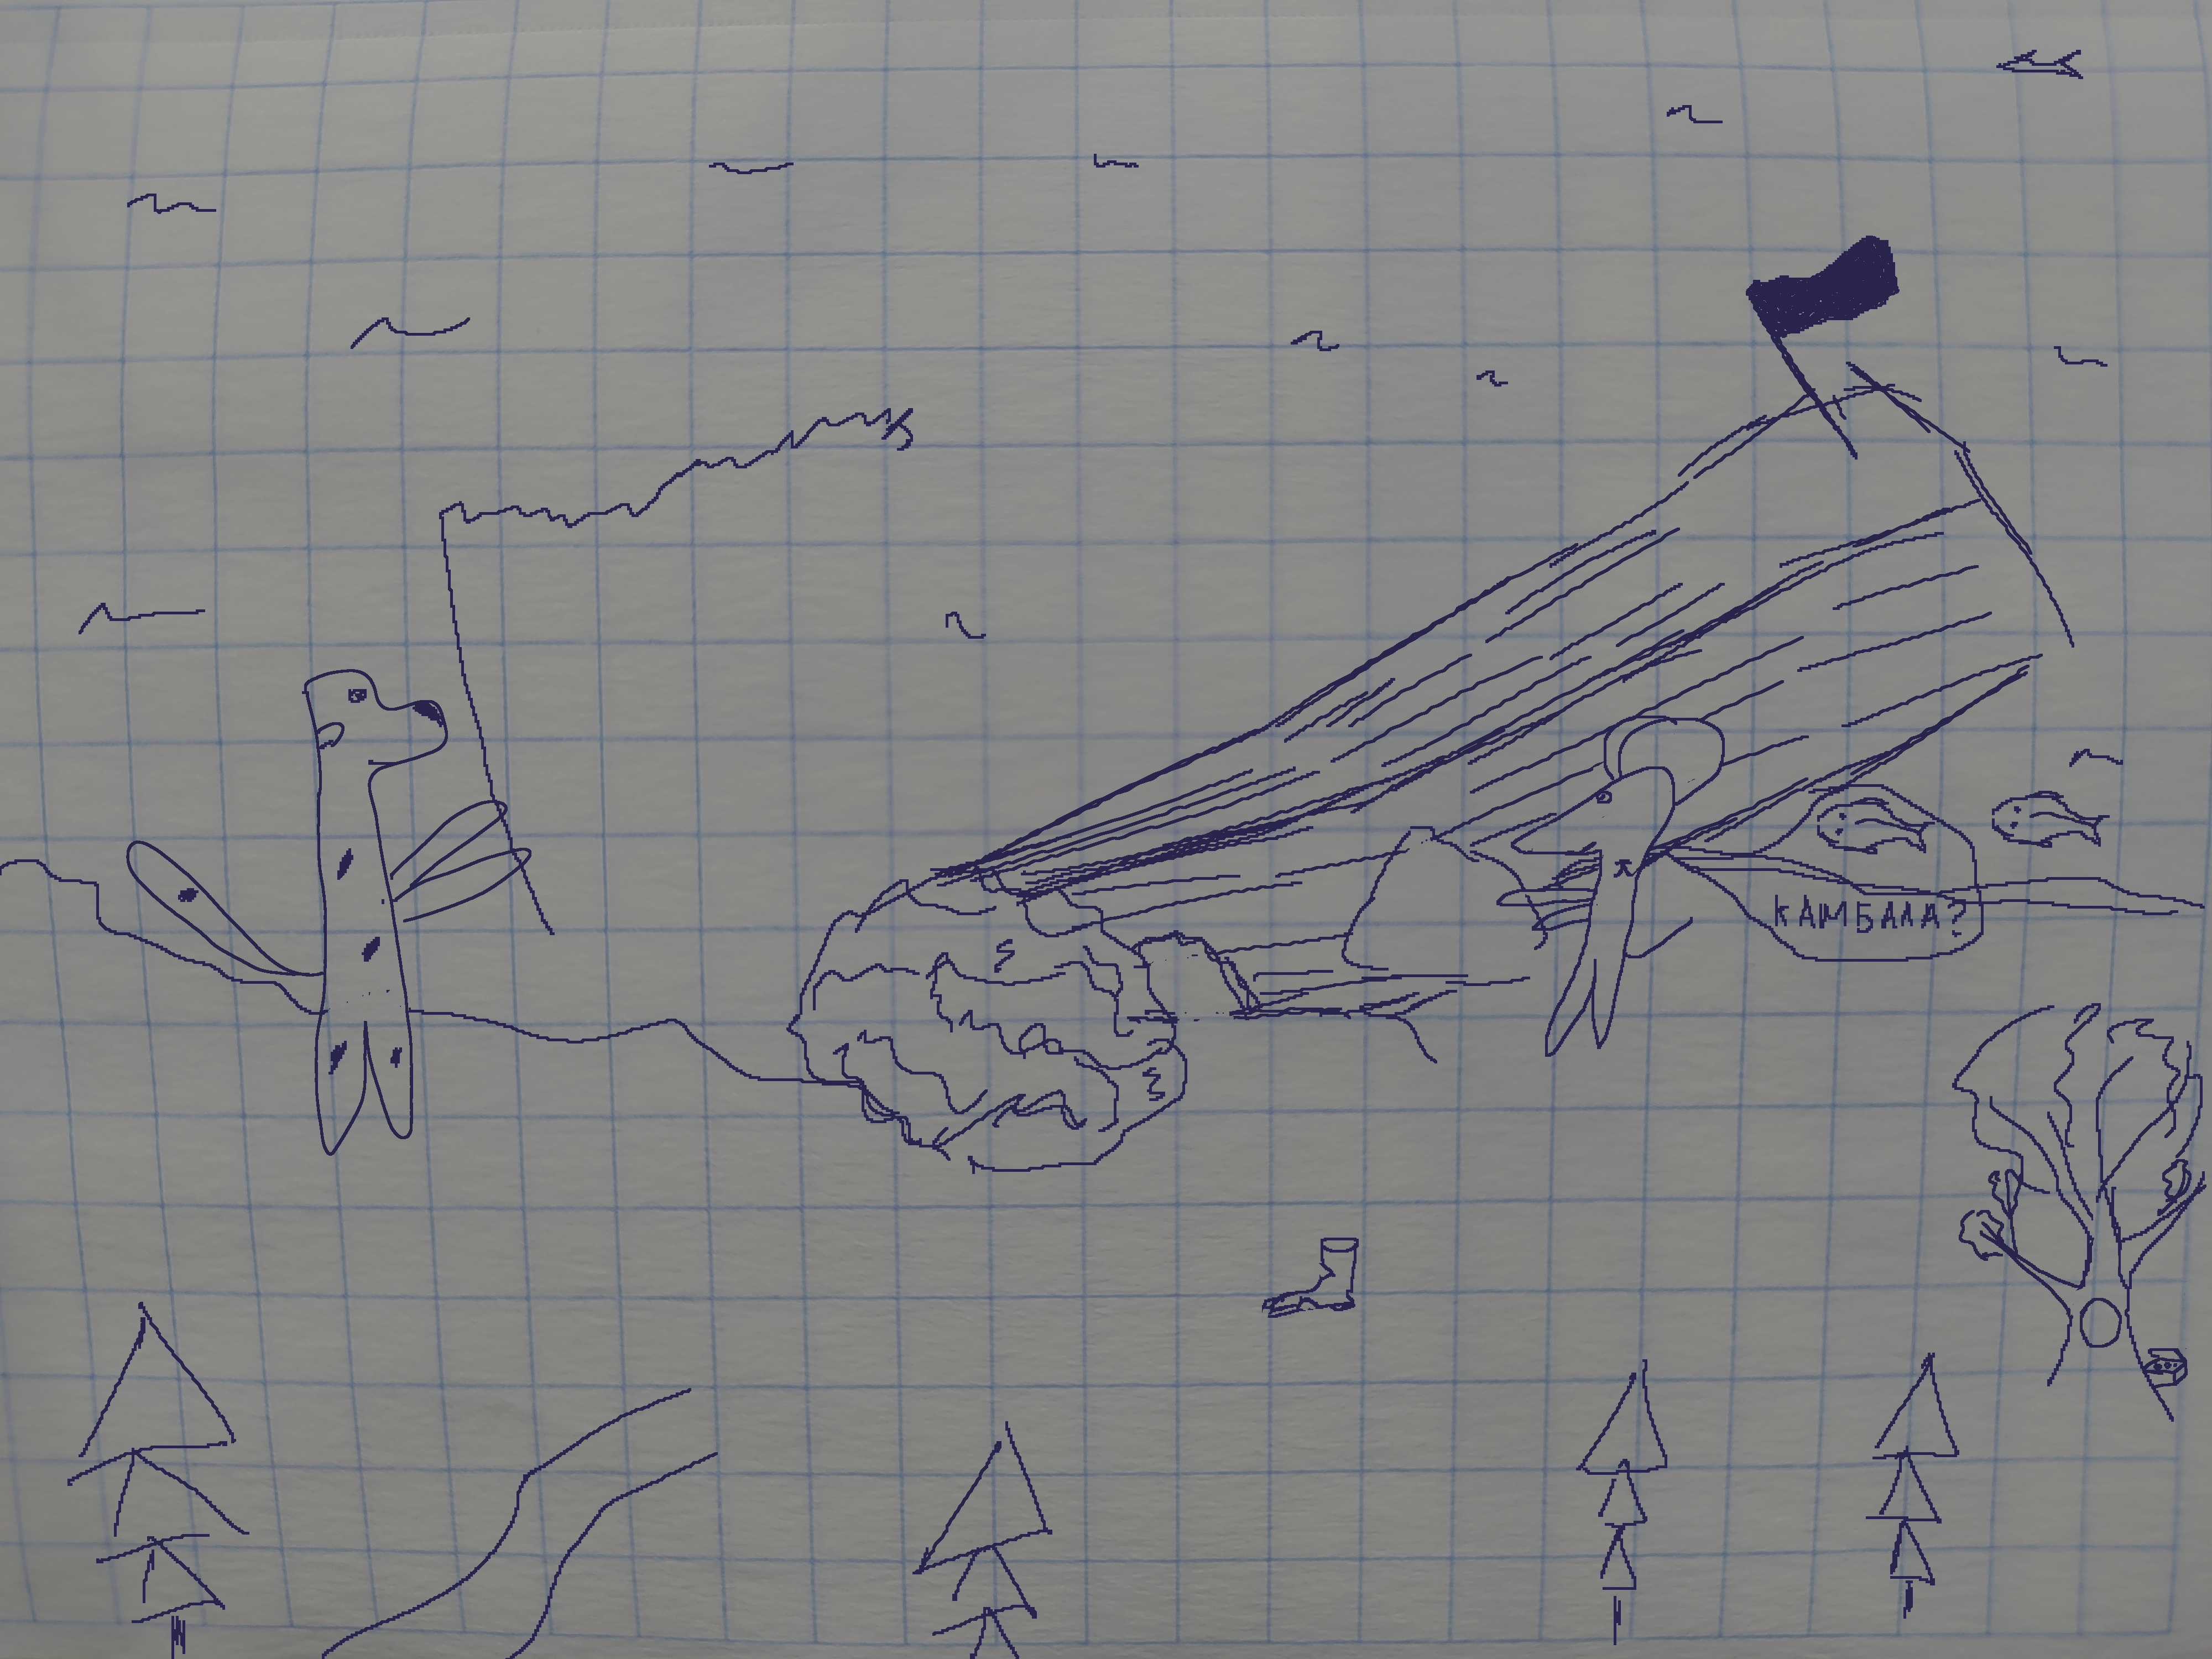 КАМБАЛА?